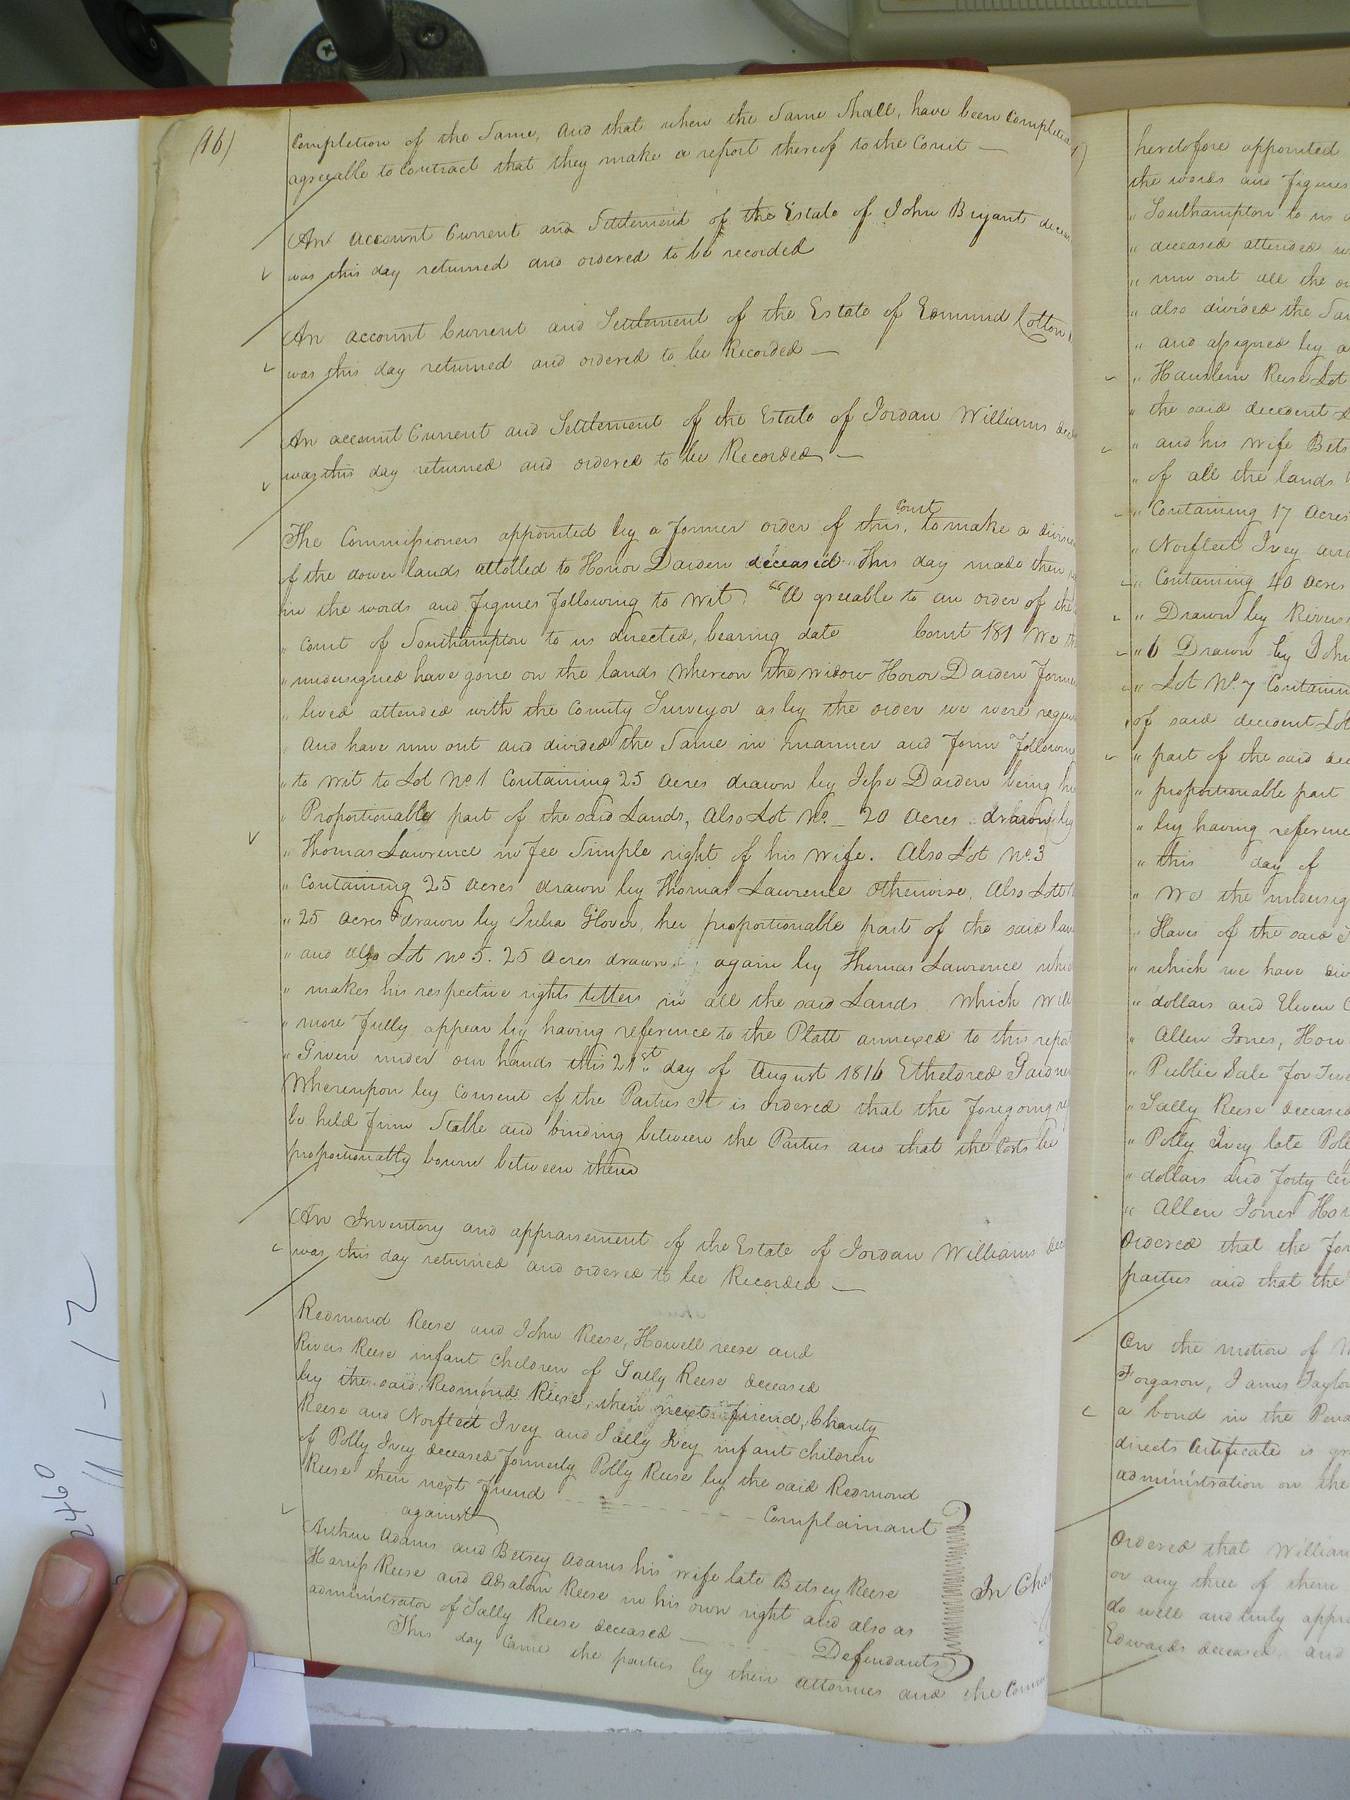 (16)
Completion of the Same, and that when the Same Shall, have been
agreeable to Contract that they make a report thereof to the Court —
An account Current and Settlement of the Estate of John Bryant
was this day returned and ordered to be recorded
An account Current and Settlement of the Estate of Edmund Cotton
was this day returned and ordered to be Recorded —
An account Current and Settlement of the Estate of Jordan Williams
was this day returned and ordered to be Recorded —
The Commissioners appointed by a former order of this Court to make a
of the dower lands allotted to Honor Darden deceased This day made their
in the words and figures following to wit: "Agreeable to an order of the
" Court of Southampton to us directed, bearing date Court 181 We the
" undersigned have gone on the lands whereon the widow Honor Darden
" lived attended with the County Surveyor as by the order we were
" And have run out and divided the Same in manner and form
" to wit to Lot No 1 Containing 25 acres drawn by Jesse Darden being his
" Proportionably part of the said Lands, Also Lot No. _ 20 acres drawn by
" Thomas Lawrence in fee Simple right of his wife. Also Lot No 3
" Containing 25 acres drawn by Thomas Lawrence Otherwise, Also Lot
" 25 acres drawn by Julia Glover, her proportionable part of the said
" and also Lot No 5. 25 acres drawn again by Thomas Lawrence
" makes his respective rights in all the said Lands Which will
" more fully appear by having reference to the Platt annexed to this
" Given under our hands this 21st day of August 1816 Etheldred
Whereupon by Consent of the Parties It is ordered that the foregoing
be held firm Stable and binding between the Parties and that the Costs be
proportionably bourn between them
An Inventory and appraisement of the Estate of Jordan Williams
was this day returned and ordered to be Recorded —
Redmond Reese and John Reese, Howell reese and
Rivers Reese infant children of Sally Reese deceased
by the said Redmond Reese, their next friend, Charity
Reese and Norfleet Ivey and Sally Ivey infant children
of Polly Ivey deceased formerly Polly Reese by the said Redmond
Reese their next friend - - - - Complainant
against
Arthur Adams and Betsey Adams his wife late Betsey Reese
Harriss Reese and Absalom Reese in his own right and also as
administrator of Sally Reese deceased — Defendants
In
This day came the parties by their attornies and the
heretofore appointed
the words and figures
" Southampton to us
" deceased attended
" run out all the
" also divided the
" and assigned by
" Reese Lot
" the said decedent
" and his wife
" of all the lands
" Containing 17 acres
" Norfleet Ivey
" Containing 40 acres
" Drawn by
" 6 Drawn by
" Lot No. 7
of said decedent
" part of the said
" proportionable part
" by having
" this day of
" We the
" Slaves of the said
" which we have
" dollars and Eleven
" Allen Jones,
" Public Sale for
" Sally Reese deceased
" Polly Ivey late
" dollars and forty
" Allen Jones
Ordered that the
parties and that the
On the motion of
James
a bond in the
directs Certificate is
administration on the
Ordered that
or any three of them
do well and truly
Edwards deceased and
11-12